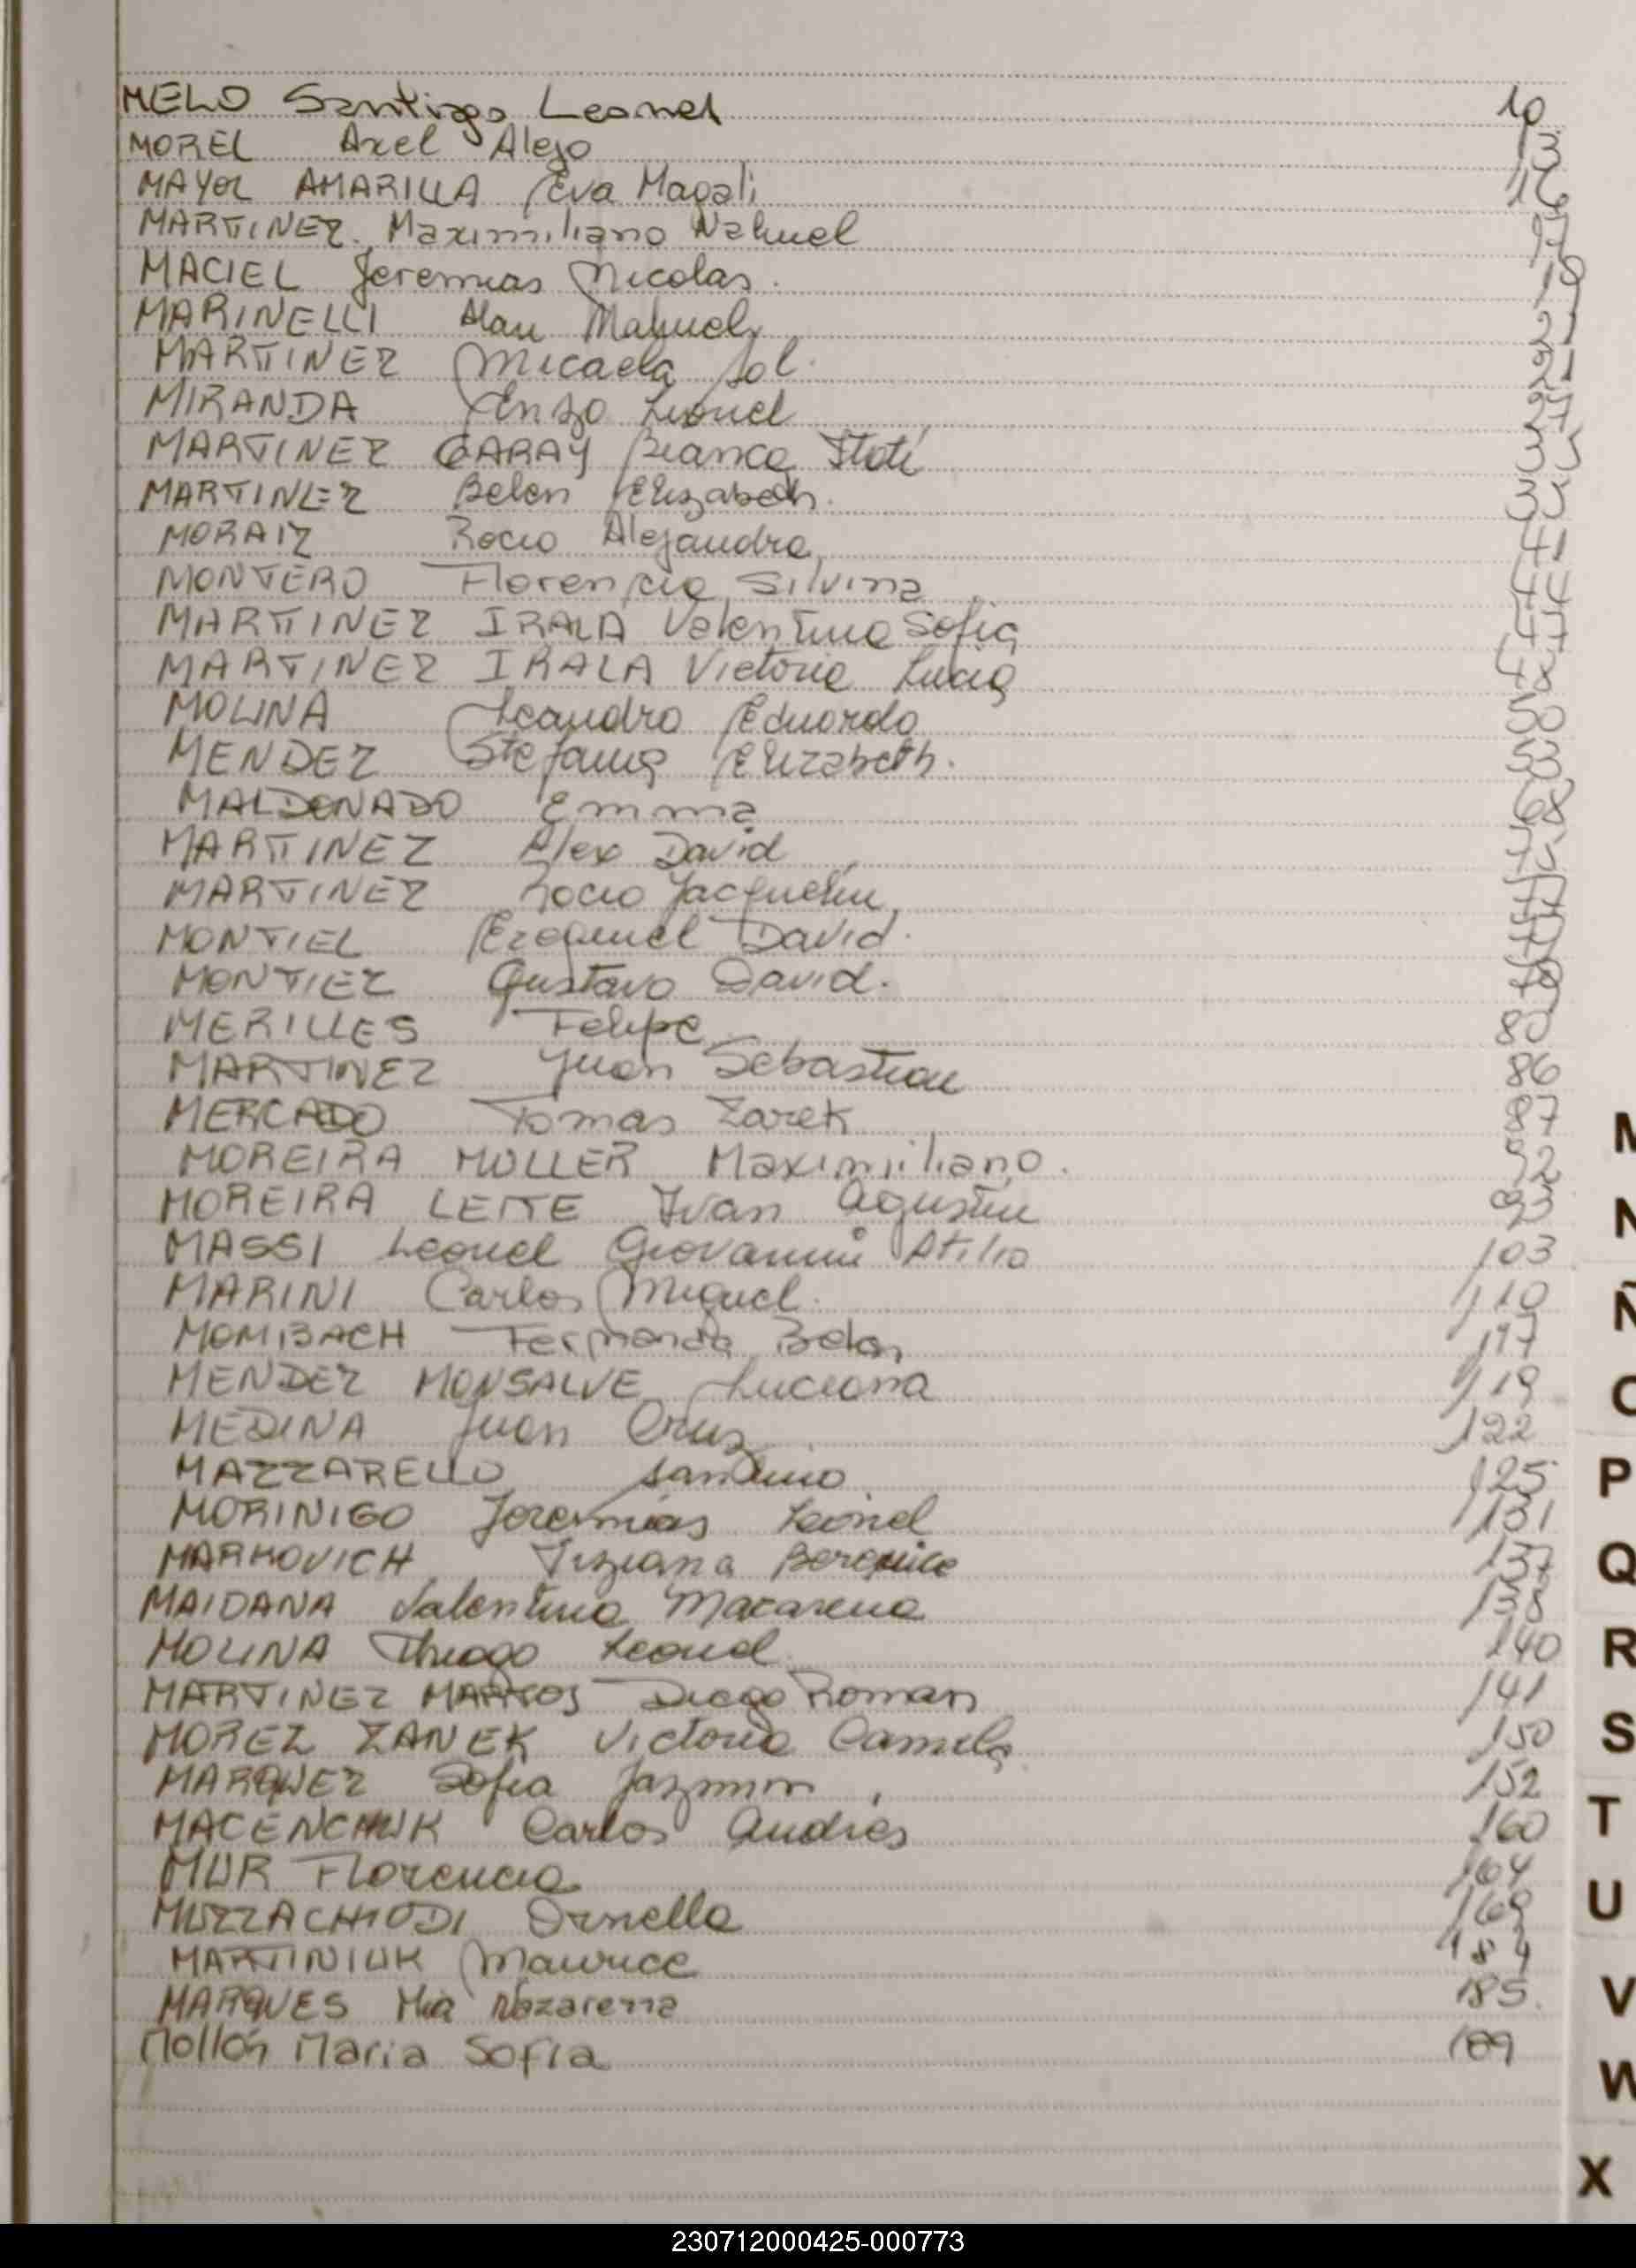 MELO Santiago Leonel 10
MOREL Axel Alejo 13
MAYOL AMARILLA Eva Magali 16
MARTINEZ. Maximiliano Nahuel 17
MACIEL Jeremias Nicolas. 19
MARINELLI Alan Mahuel 21
MARTINEZ Micaela Sol. 21
MIRANDA Enzo Leonel 27
MARTINEZ GARAY Bianca Itatí 35
MARTINEZ Belen Elizabeth. 35
MORAIZ Rocio Alejandra 41
MONTERO Florencia Silvina 44
MARTINEZ IRALA Valentina Sofia 47
MARTINEZ IRALA Victoria Lucia 48
MOLINA Leandro Eduardo 50
MENDEZ Stefania Elizabeth. 53
MALDONADO Emma 68
MARTINEZ Alex David 75
MARTINEZ Rocio Jacquelin 77
MONTIEL Ezequiel David.
MONTIEL Gustavo David. 79
MERILLES Felipe 80
MARTINEZ Juan Sebastian 86
MERCADO Tomas Zarek 87
MOREIRA MULLER Maximiliano. 92
MOREIRA LEITE Ivan Agustin 93
MASSI Leonel Giovanni Atilio 103
MARINI Carlos Miguel. 110
MOMBACH Fernanda Belen 117
MENDEZ MONSALVE Luciana 119
MEDINA Juan Cruz 122
MAZZARELLO Santino 125
MORINIGO Jeremías Leonel 131
MARKOVICH Tiziana Berenice 137
MAIDANA Valentina Macarena 138
MOLINA Thiago Leonel 140
MARTINEZ MARCOS Diego Roman 141
MOREZ ZANEK Victoria Camila 150
MARQUEZ Sofia Jazmin 152
MACENCHUK Carlos Andrés 160
MUR Florencia 164
MUZZACHIODI Ornella 169
MARTINIUK Maurice 184
MARQUES Mia Nazarena 185.
Mollón Maria Sofia 189
M
N
Ñ
O
P
Q
R
S
T
U
V
W
X
230712000425-000773